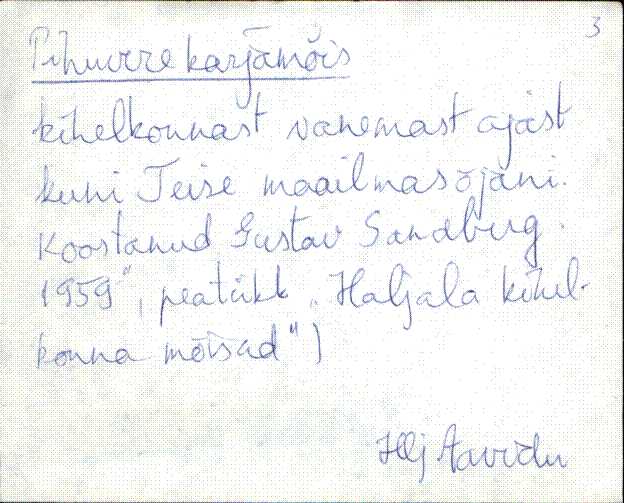 3
Pihuvere karjamõis
kihelkonnast vanemast ajast
kuni Teise maailmasõjani.
Koostanud Gustav Sandberg.
1959", peatükk „Haljala kihel-
konna mõisad")